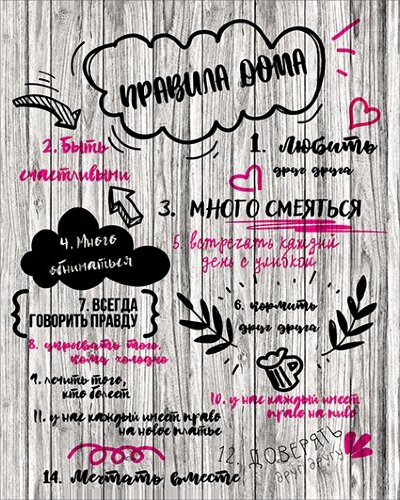 ПРАВИЛА ДОМА
1. Любить
друг друга
2. Быть
счастливыми
3. МНОГО СМЕЯТЬСЯ
4. Много
обниматься
5. встречать каждый
день с улыбкой
6. кормить
друг друга
7. ВСЕГДА
ГОВОРИТЬ ПРАВДУ
8. укрывать того,
кому холодно
9. лечить того,
кто болеет
10. у нас каждый имеет
право на пиво
11. у нас каждый имеет право
на новое платье
12. ДОВЕРЯТЬ
друг другу
14. Мечтать вместе